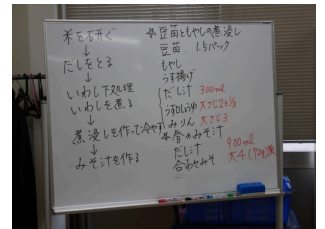 米を研ぐ
↓
だしをとる
↓
いわし下処理
いわしを煮る
↓
煮浸しを作って冷やす
↓
みそ汁を作る
☆豆苗ともやしの煮浸し
豆苗 1.5パック
もやし
うす揚げ
だし汁 300ml
うす口しょうゆ 大さじ2と1/2
みりん 大さじ3
☆ のみそ汁
だし汁 900ml
合わせみそ 大4